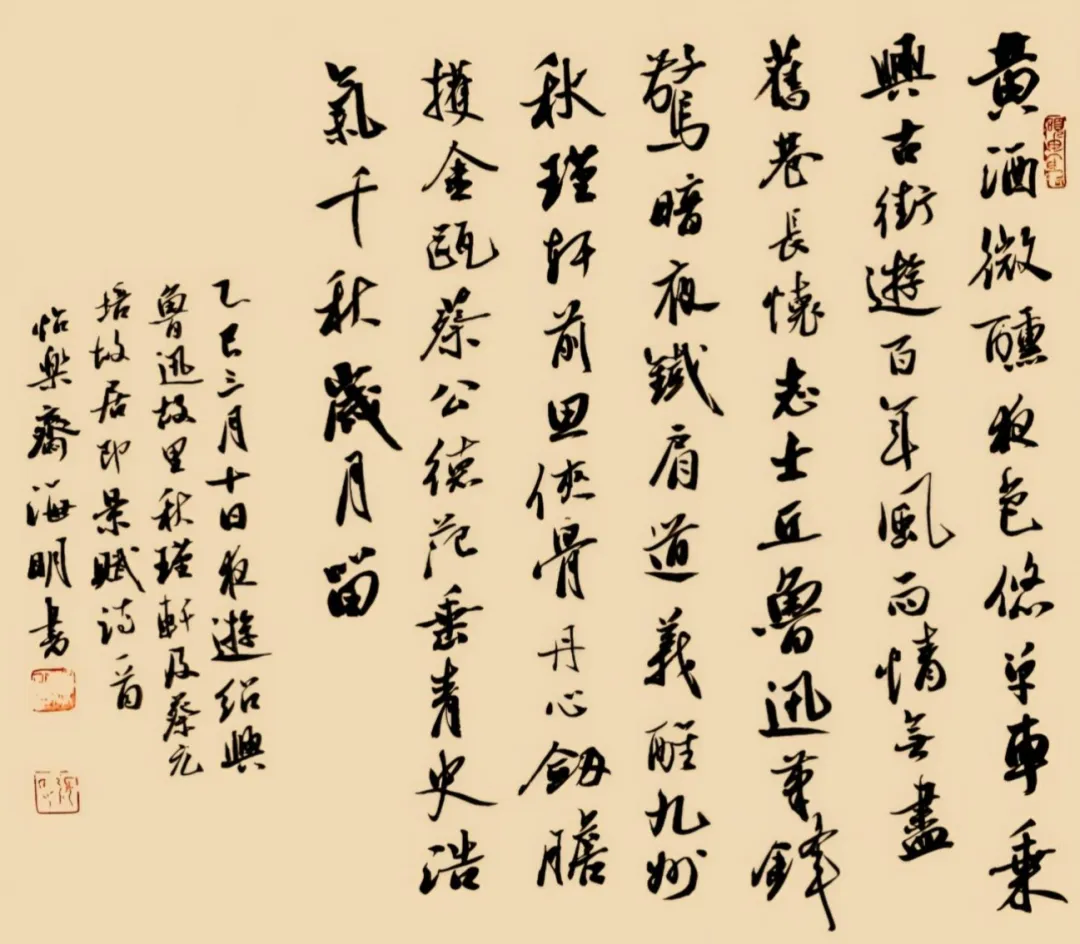 黄酒微醺夜色悠单車乗
興古街遊百年風雨情無盡
舊巷長懷志士丘魯迅筆鋒
驚暗夜鐵肩道義醒九州
秋瑾軒前思俠骨丹心劔膽
擭金甌蔡公德范垂青史浩
氣千秋歲月留
乙巳三月十日夜遊绍興
魯迅故里秋瑾軒及蔡元
培故居即景賦詩一首
怡樂齋海明书